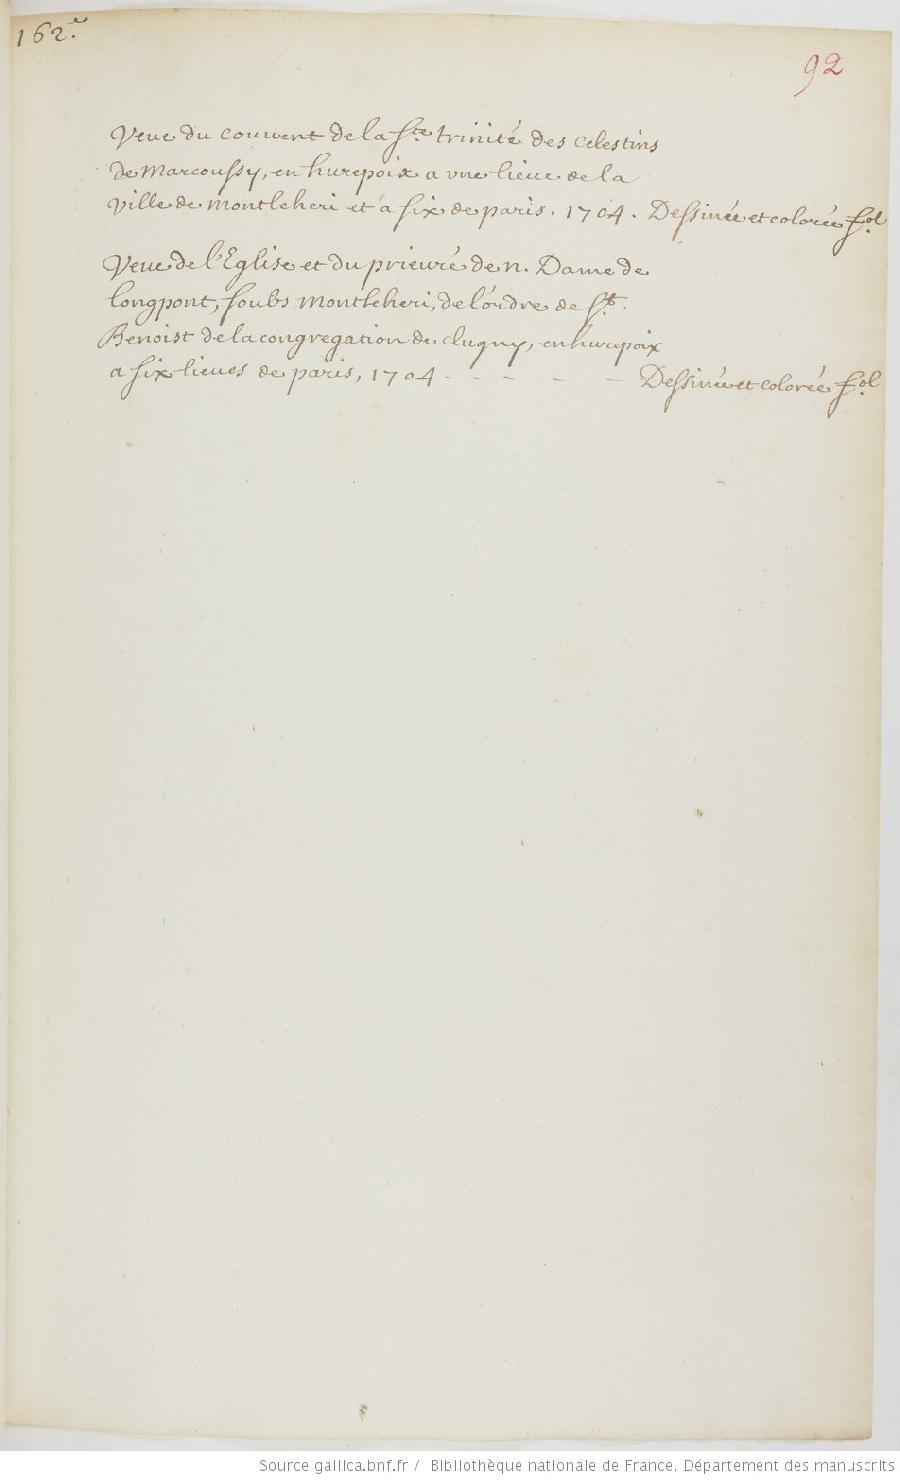 162.e
92
Veue du couvent de la Ste. trinité des Celestins
de Marcoussy, en hurepoix a une lieue de la
Ville de montleheri et a six de paris. 1704. Dessinée et colorée fol.
Veue de l'Eglise et du prieuré de n. Dame de
longpont, soubs montleheri, de l'ordre de St.
Benoist de la congregation de clugny, en hurepoix
a six lieues de paris, 1704 - - - - - Dessinée et colorée fol.
Source gallica.bnf.fr / Bibliothèque nationale de France. Département des manuscrits